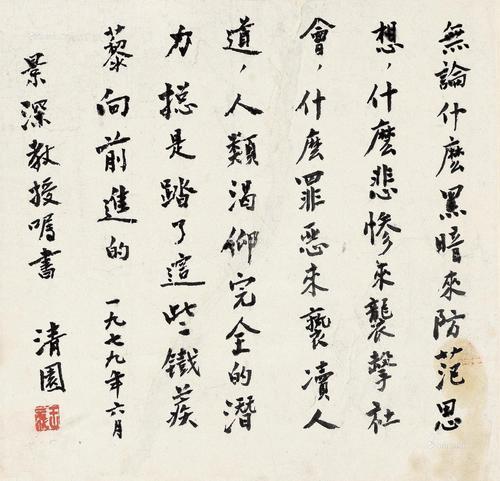 無論什麽黑暗來防范思
想,什麽悲慘來襲擊社
會,什麽罪惡來褻瀆人
道,人類渴仰完全的潛
力揔是踏了這些鐵蒺
藜向前進的
一九七九年六月
景深教授囑書
清園